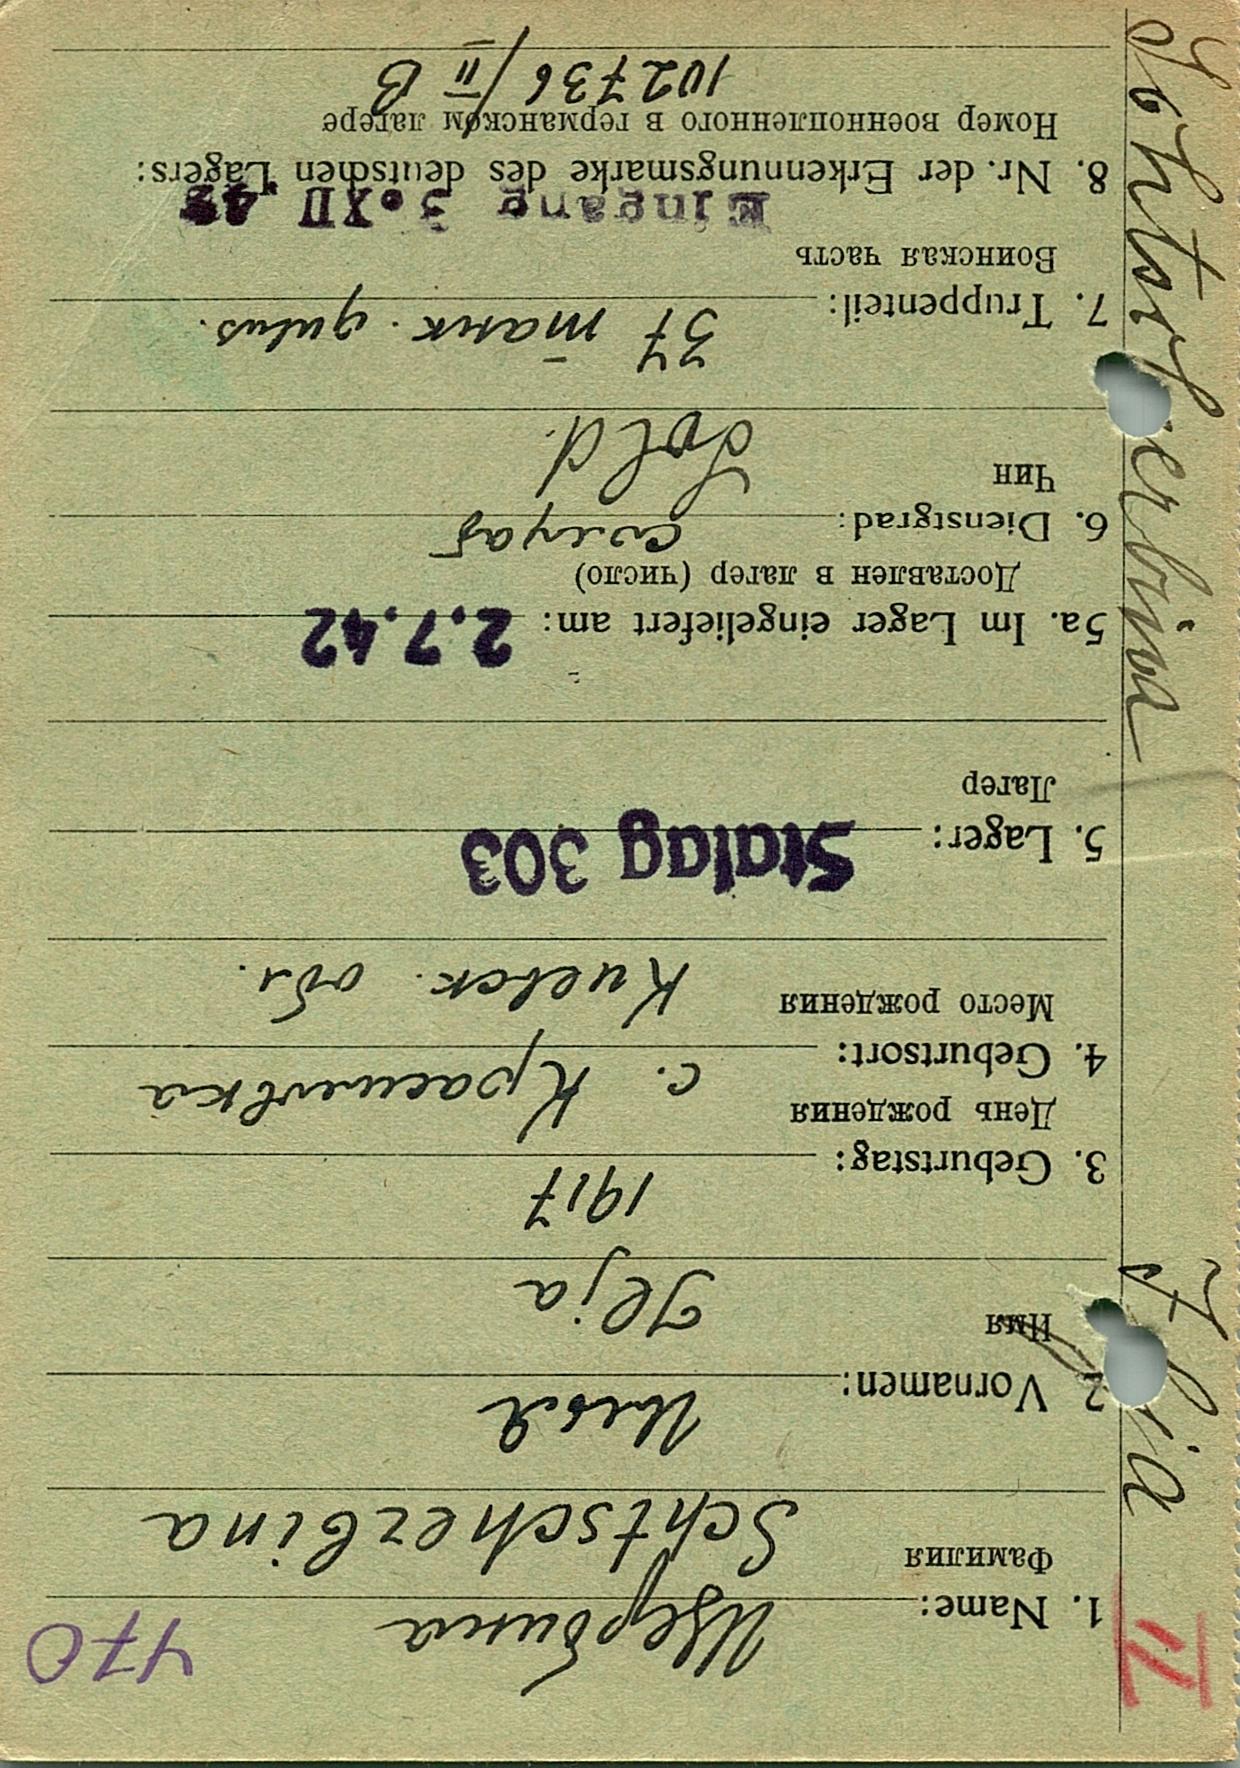 470
II
1. Name: Щербина
Фамилия
Schtscherbina
2. Vornamen:
Имя
Ilja
3. Geburtstag: 1917
День рождения
4. Geburtsort: с.
Место рождения
Киевск. обл.
5. Lager: Stalag 303
Лагер
5a. Im Lager eingeliefert am: 2.7.42
Доставлен в лагер (число)
6. Dienstgrad: солдат
Чин
Sold.
7. Truppenteil: 37 танк. дивиз.
Воинская часть
Eingang 3.XII
8. Nr. der Erkennungsmarke des deutschen Lagers:
Номер военнопленного в германском лагере
102736/II B
Schtscherbina Ilja